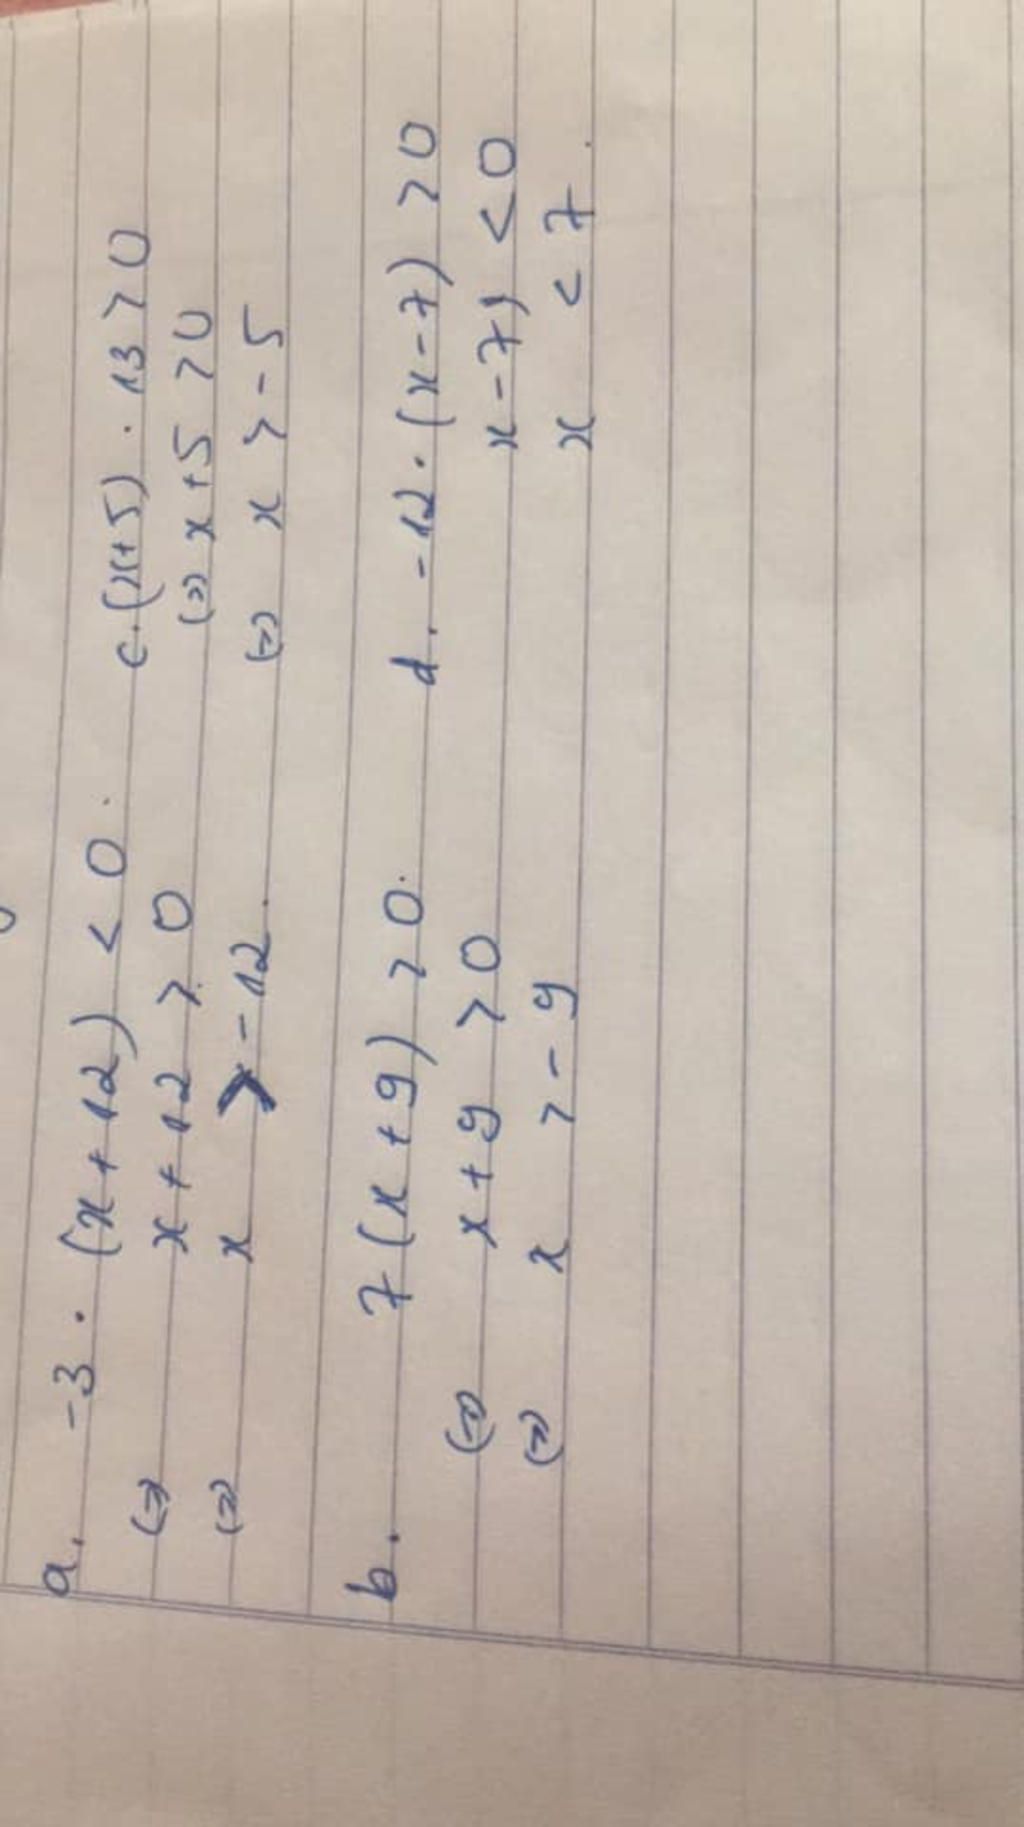 a. -3 . (x + 12) < 0 .
(=) x + 12 > 0
(=) x > -12 .
c. (x+5) . 13 > 0
(=) x + 5 > 0
(=) x > -5
b. 7 (x + 9) > 0 .
(=) x + 9 > 0
(=) x > -9
d. -12 . (x - 7) > 0
x - 7) < 0
x < 7 .